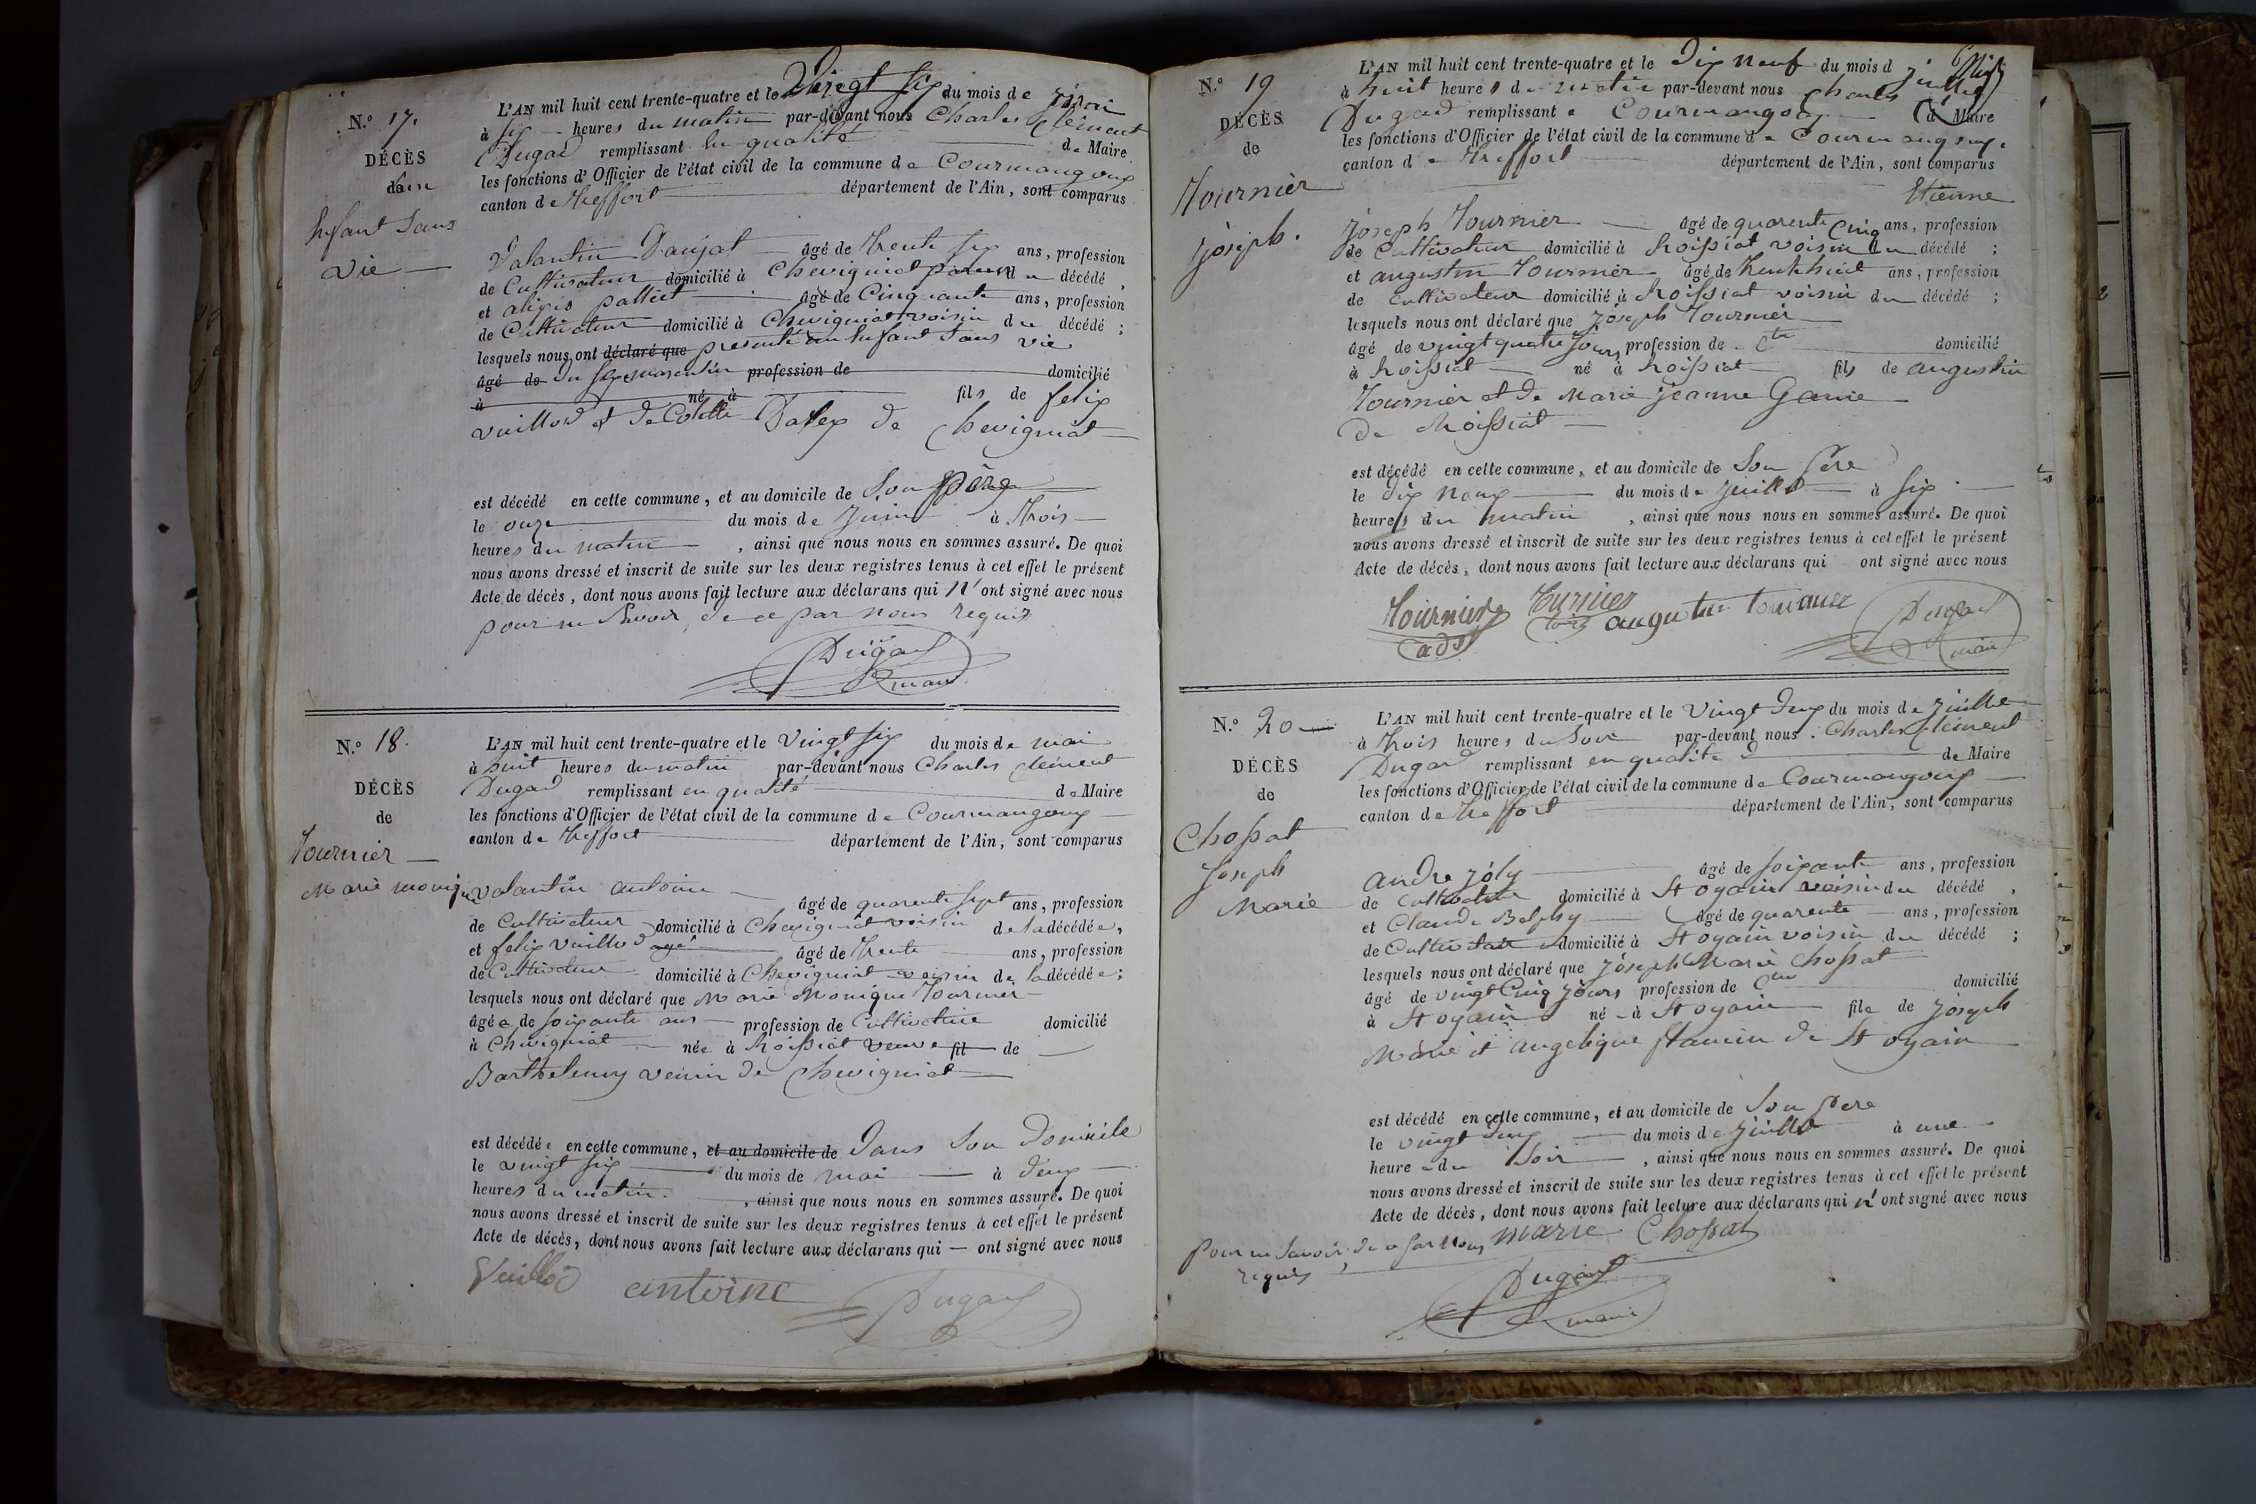 N.º 17.
DÉCÈS
d'un
Enfant Sans
Vie
L'AN mil huit cent trente-quatre et le Vingt six du mois de
à six heures du matin par-devant nous Charles Clément
Dugad remplissant en qualité de Maire
les fonctions d'Officier de l'état civil de la commune de Courmangoux
canton de Treffort département de l'Ain, sont comparus
Valantin Daujat âgé de Trente six ans, profession
de Cultivateur domicilié à Chevigniat du décédé,
et âgé de Cinquante ans, profession
de Cultivateur domicilié à Chevigniat voisin du décédé;
lesquels nous ont déclaré que présenté un Enfant Sans vie
âgé de du sexe masculin profession de domicilié
à né à fils de felix
vuillod et de Colette Dalex de Chevigniat
est décédé en cette commune, et au domicile de Son père
le onze du mois de Juin à Trois
heures du matin, ainsi que nous nous en sommes assuré. De quoi
nous avons dressé et inscrit de suite sur les deux registres tenus à cet effet le présent
Acte de décès, dont nous avons fait lecture aux déclarans qui n'ont signé avec nous
pour ne Savoir, de ce par nous requis
Dugad
maire
N.º 18.
DÉCÈS
de
Tournier
Marie monique
L'AN mil huit cent trente-quatre et le Vingt six du mois de mai
à huit heures du matin par-devant nous Charles Clément
Dugad remplissant en qualité de Maire
les fonctions d'Officier de l'état civil de la commune de Courmangoux
canton de Treffort département de l'Ain, sont comparus
valantin antoine âgé de quarente sept ans, profession
de Cultivateur domicilié à Chevigniat voisin de la décédée,
et felix vuillod âgé de Trente ans, profession
de Cultivateur domicilié à Chevigniat voisin de la décédée;
lesquels nous ont déclaré que Marie Monique Tournier
âgée de soixante ans profession de Cultivatrice domicilié
à Chevigniat née à Roissiat veuve fil de
Barthelemy venin de Chevigniat
est décédée en cette commune, et au domicile de Dans Son Domicile
le vingt six du mois de mai à deux
heures du matin, ainsi que nous nous en sommes assuré. De quoi
nous avons dressé et inscrit de suite sur les deux registres tenus à cet effet le présent
Acte de décès, dont nous avons fait lecture aux déclarans qui — ont signé avec nous
Vuillod antoine Dugad
N.º 19
DÉCÈS
de
Tournier
Joseph.
L'AN mil huit cent trente-quatre et le Dix neuf du mois d Juillet
à huit heures du matin par-devant nous Charles
Dugad remplissant Courmangoux de Maire
les fonctions d'Officier de l'état civil de la commune de Courmangoux
canton de Treffort département de l'Ain, sont comparus
Etienne
Joseph Tournier âgé de quarente Cinq ans, profession
de Cultivateur domicilié à Roissiat voisin du décédé;
et augustin Tournier âgé de Trente huit ans, profession
de Cultivateur domicilié à Roissiat voisin du décédé;
lesquels nous ont déclaré que Joseph Tournier
âgé de vingt quatre Jours profession de domicilié
à Roissiat né à Roissiat fils de augustin
Tournier et de Marie Jeanne
de Roissiat
est décédé en cette commune, et au domicile de Son Père
le Dix Neuf du mois de Juillet à six
heures du matin, ainsi que nous nous en sommes assuré. De quoi
nous avons dressé et inscrit de suite sur les deux registres tenus à cet effet le présent
Acte de décès, dont nous avons fait lecture aux déclarans qui ont signé avec nous
Tournier Dugad
adj maire
N.º 20
DÉCÈS
de
Chossat
Joseph
Marie
L'AN mil huit cent trente-quatre et le Vingt Deux du mois de Juillet
à Trois heures du Soir par-devant nous Charles Clément
Dugad remplissant en qualité de Maire
les fonctions d'Officier de l'état civil de la commune de Courmangoux
canton de Treffort département de l'Ain, sont comparus
andre Joly âgé de soixante ans, profession
de Cultivateur domicilié à St oyain voisin du décédé,
et Claude âgé de quarente ans, profession
de Cultivateur domicilié à St oyain voisin du décédé;
lesquels nous ont déclaré que Joseph Marie Chossat
âgé de vingt Cinq Jours profession de domicilié
à St oyain né à St oyain fils de Joseph
Marie et angelique de St oyain
est décédé en cette commune, et au domicile de Son Pere
le vingt deux du mois de Juillet à une
heure du Soir, ainsi que nous nous en sommes assuré. De quoi
nous avons dressé et inscrit de suite sur les deux registres tenus à cet effet le présent
Acte de décès, dont nous avons fait lecture aux déclarans qui n'ont signé avec nous
Pour ne Savoir, de ce par Nous marie Chossat
requis
Dugad
maire